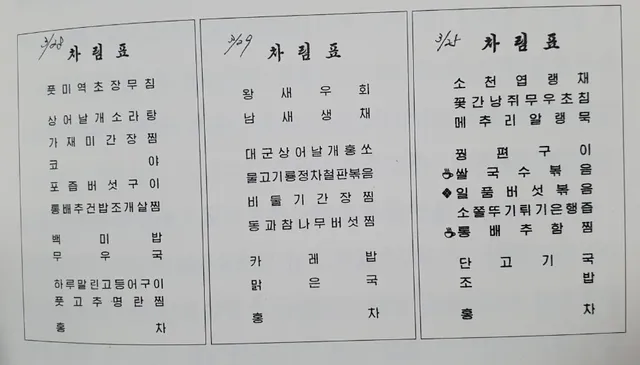 3/28
차림표
풋미역초장무침
상어날개소라탕
가재미간장찜
코야
포즙버섯구이
통배추건밥조개살찜
백미밥
무우국
하루말린고등어구이
풋고추명란찜
홍차
3/29
차림표
왕새우회
남새생채
대군상어날개홍쏘
물고기룡정차철판볶음
비둘기간장찜
동과참나무버섯찜
카레밥
맑은국
홍차
3/25
차림표
소천엽랭채
꽃간낭쥐무우초침
메추리알랭묵
꿩편구이
쌀국수볶음
일품버섯볶음
소쫄뚜기튀기은행즙
통배추함찜
단고기국
조밥
홍차